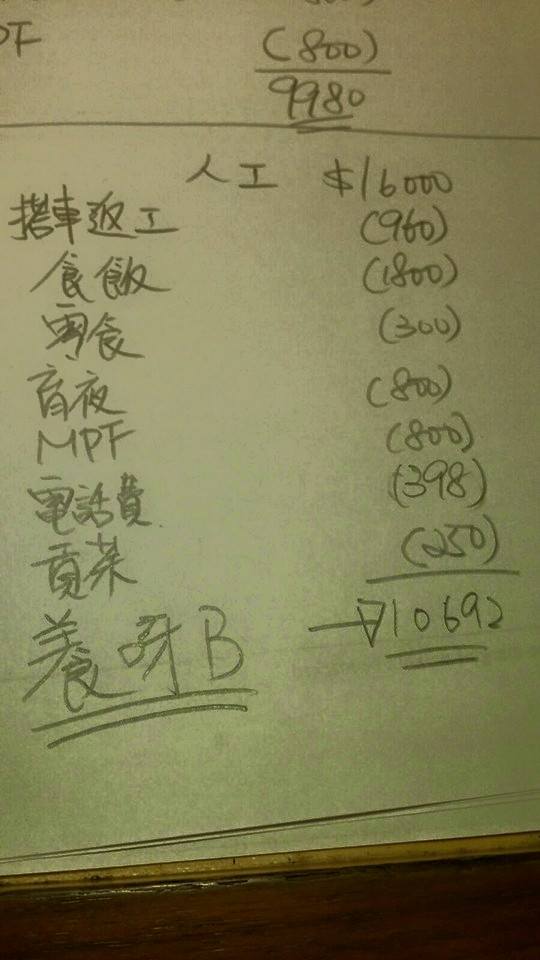 PF (800)
9980
人工 $16000
搭車返工 (960)
食飯 (1800)
零食 (300)
宵夜 (800)
MPF (800)
電話費 (398)
貢茶 (250)
養呀B → 10692